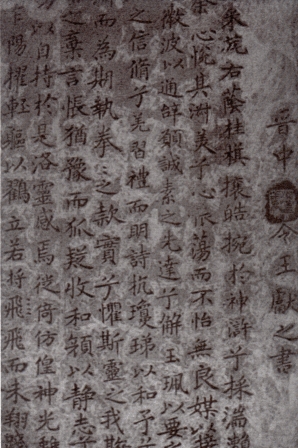 晉中令王獻之書
采旄右蔭桂旗攘皓捥於神滸兮採湍瀨
余心悅其淑美兮心振蕩而不怡無良媒以
微波以通辭願誠素之先達兮解玉珮以要
之信脩兮羌習禮而明詩抗瓊珶以和予兮
而為期執拳〻之款實兮懼斯靈之我斯
之棄言悵猶豫而狐疑收和顏以靜志兮
以自持於是洛靈感焉徙倚仿偟神光離
乍陽擢輕軀以鶴立若將飛飛而未翔